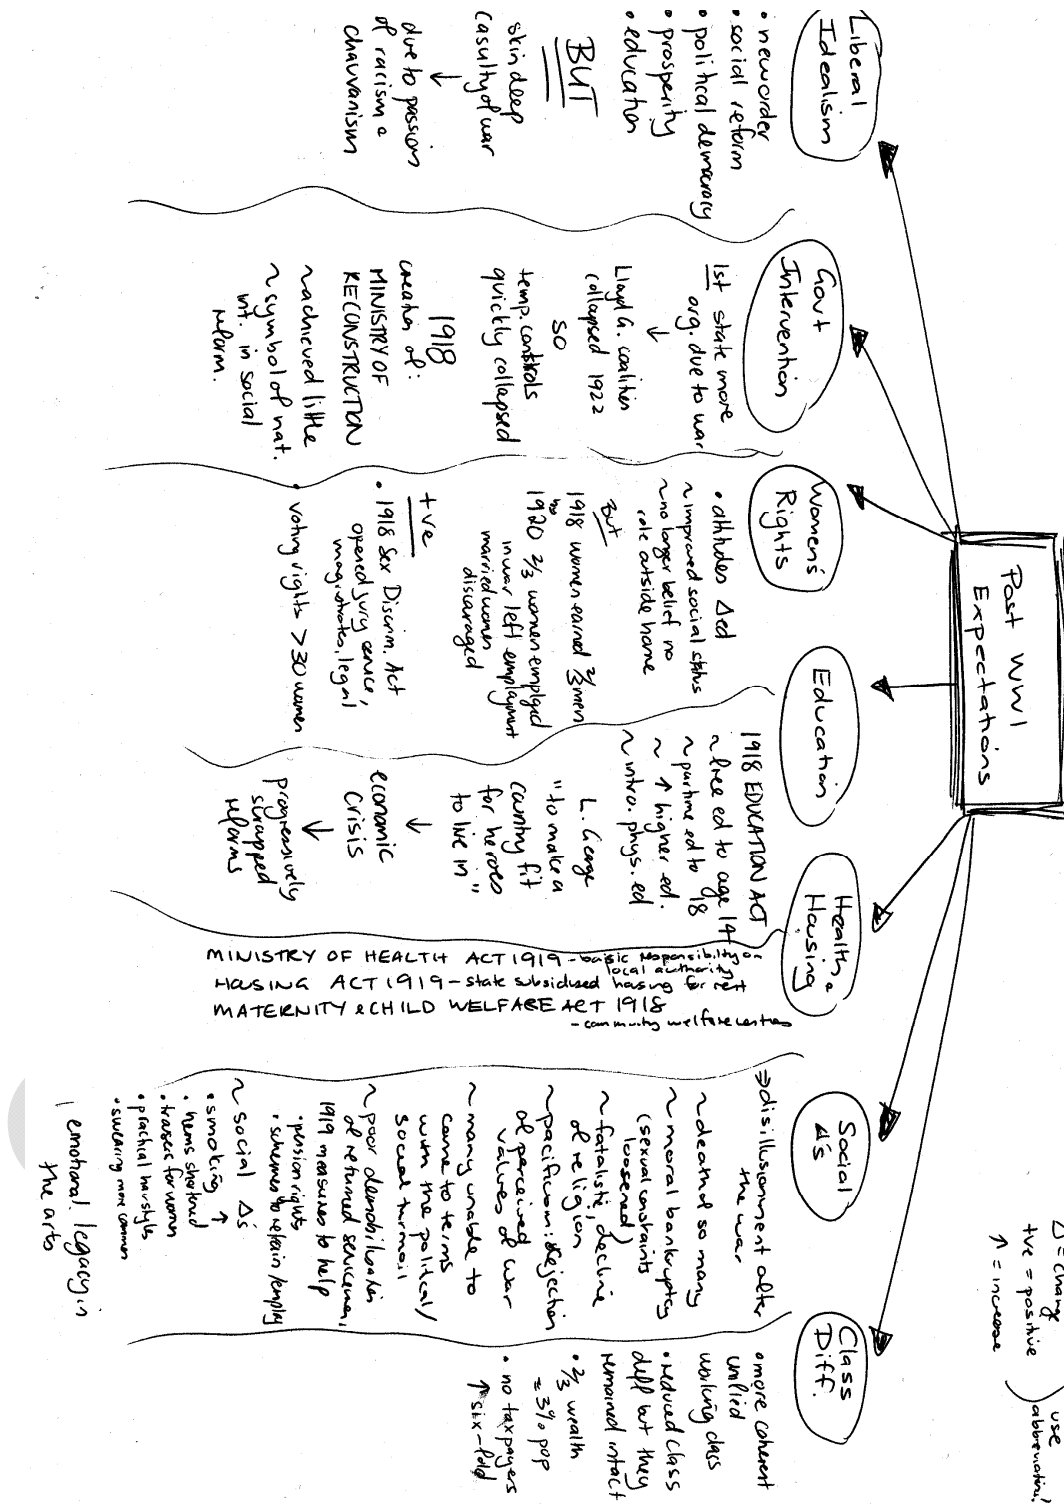 Post WW1
Expectations
Δ = change
+ve = positive
↑ = increase
use
abbreviations!
Liberal
Idealism
• new order
• social reform
• political democracy
• prosperity
• education
BUT
skin deep
casulty of war
↓
due to passion
of racism &
chauvanism
Govt
Intervention
1st state more
org. due to war
↓
Lloyd G. coalition
collapsed 1922
SO
temp. controls
quickly collapsed
1918
creation of:
MINISTRY OF
RECONSTRUCTION
~ achieved little
~ symbol of nat.
int. in social
reform.
Women's
Rights
• attitudes Δed
~ improved social status
~ no longer belief no
role outside home
But
1918 women earned 2/3 men
1920 2/3 women employed
in war left employment
married women
discouraged
+ve
• 1918 Sex Discrim. Act
opened jury service,
magistrates, legal
• voting rights > 30 women
Education
1918 EDUCATION ACT
~ free ed to age 14
~ partime ed to 18
~ ↑ higher ed.
~ intro. phys. ed
L. George
"to make a
country fit
for heroes
to live in"
↓
economic
crisis
↓
progressively
scrapped
reforms
Health &
Housing
MINISTRY OF HEALTH ACT 1919 - basic responsibility on
local authority
HOUSING ACT 1919 - state subsidised housing for rent
MATERNITY & CHILD WELFARE ACT 1918
- community welfare centres
Social
Δ's
⇒ disillusionment after
the war
~ death of so many
~ moral bankruptcy
(sexual constraints
loosened)
~ fatalistic; decline
of religion
~ pacificism: rejection
of perceived
values of war
~ many unable to
come to terms
with the political/
social turmoil
~ poor demobilisation
of returned servicemen,
1919 measures to help
• pension rights
• schemes to retrain/employ
~ social Δs
• smoking ↑
• hems shortened
• trousers for women
• practical hairstyles
• swearing more common
| emotional legacy in
the arts
Class
Diff.
• more coherent
unified
working class
• reduced class
diff but they
remained intact
• 2/3 wealth
= 3% pop
• no taxpayers
↑ six-fold